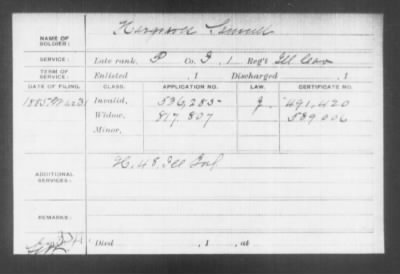 NAME OF SOLDIER: Samuel
SERVICE: Late rank, P Co. I, 1 Reg't Ill Cav
TERM OF SERVICE: Enlisted , 1 Discharged , 1
DATE OF FILING. CLASS. APPLICATION NO. LAW. CERTIFICATE NO.
1885 Invalid, 536,285 491,420
Widow, 817,807 589006
Minor,
ADDITIONAL SERVICES: H. 48, Ill Inf
REMARKS:
Died , 1 , at